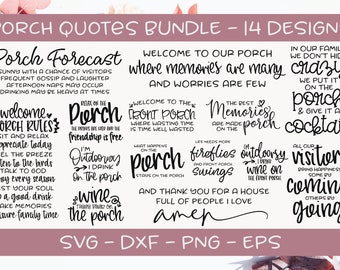 PORCH QUOTES BUNDLE - 14 DESIGN
Porch Forecast
SUNNY WITH A CHANCE OF VISITORS
FREQUENT GOSSIP AND LAUGHTER
AFTERNOON NAPS MAY OCCUR
DRINKING MAY BE HEAVY AT TIMES
WELCOME TO OUR PORCH
where memories are many
AND WORRIES ARE FEW
IN OUR FAMILY
WE DON'T HIDE
crazy
WE PUT IT
ON THE
porch
& GIVE IT A
cocktail
welcome
PORCH RULES
SIT AND RELAX
appreciate today
FEEL THE BREEZE
listen to the birds
TALK TO GOD
enjoy every view
REST YOUR SOUL
have a good drink
MAKE MEMORIES
treasure family time
RELAX ON THE
Porch
THE DRINKS ARE COLD AND THE
friendship is free
WELCOME TO THE
front porch
WHERE WASTING TIME
IS TIME WELL WASTED
THE BEST
Memories
ARE MADE
ON THE
porch
I'm
Outdoorsy
I DRINK
ON THE
patio
WHAT HAPPENS
ON THE
porch
STAYS ON THE PORCH
LIFE NEEDS MORE
fireflies
AND FRONT
PORCH
swings
I'm
outdoorsy
I DRINK
wine
ON THE FRONT
porch
wine
TASTES BETTER ON
the porch
AND THANK YOU FOR A HOUSE
FULL OF PEOPLE I LOVE
amen
ALL OUR
visitors
BRING HAPPINESS
SOME BY
coming
OTHERS BY
going
SVG - DXF - PNG - EPS